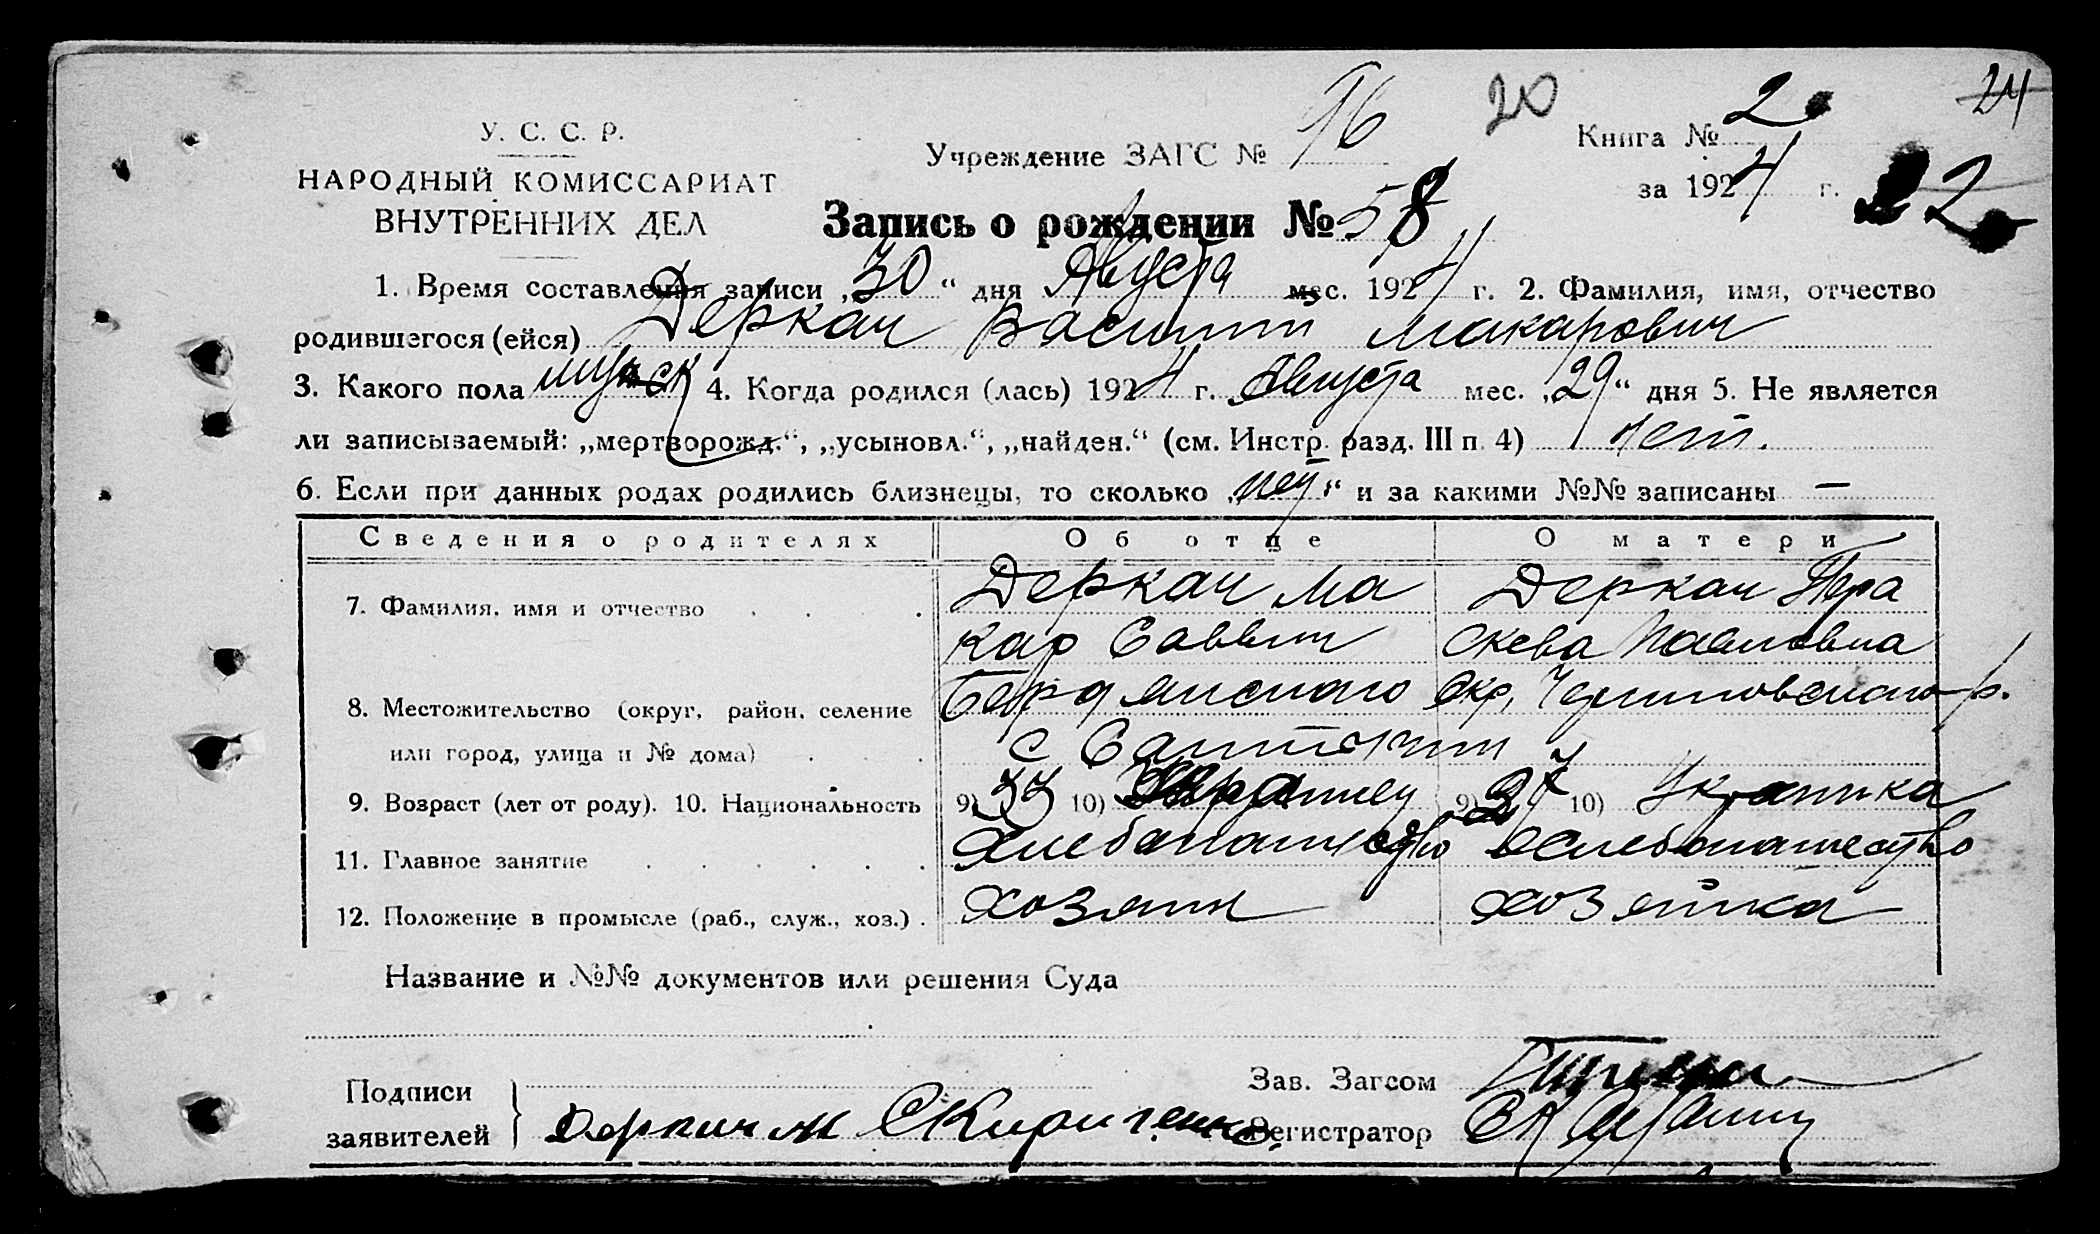 20
24
У. С. С. Р.
НАРОДНЫЙ КОМИССАРИАТ
ВНУТРЕННИХ ДЕЛ
Учреждение ЗАГС № 16
Книга № 2
за 1924 г. 22
Запись о рождении № 58
1. Время составления записи „30“ дня Августа мес. 1924 г. 2. Фамилия, имя, отчество
родившегося (ейся) Деркач Василий Макарович
3. Какого пола мужск 4. Когда родился (лась) 1924 г. Августа мес. „29“ дня 5. Не является
ли записываемый: „мертворожд.“, „усыновл.“, „найден.“ (см. Инстр. разд. III п. 4) нет.
6. Если при данных родах родились близнецы, то сколько „нет“ и за какими №№ записаны —
Сведения о родителях Об отце О матери
7. Фамилия, имя и отчество Деркач Ма Деркач Пра
кар Саввич скева Павловна
8. Местожительство (округ, район, селение Бердянского Окр, Черниговского р.
или город, улица и № дома) с
9. Возраст (лет от роду). 10. Национальность 9) 33 10) Украинец 9) 27 10) Украинка
11. Главное занятие Хлебопашество Хлебопашество
12. Положение в промысле (раб., служ., хоз.) Хозяин Хозяйка
Название и №№ документов или решения Суда
Подписи
заявителей Деркач М Кириченко
Зав. Загсом
Регистратор